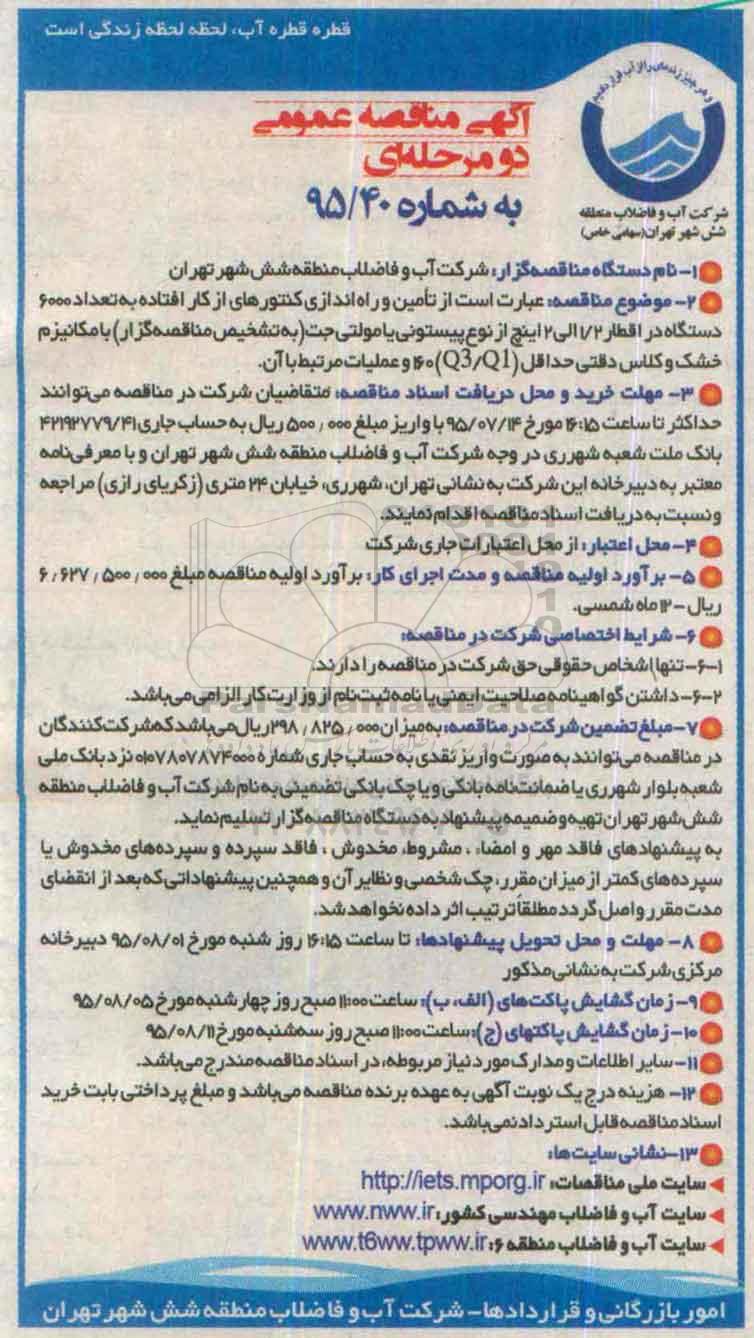 قطره قطره آب، لحظه لحظه زندگی است
و هر چیز زنده‌ای را از آب قرار دادیم
آگهی مناقصه عمومی
دو مرحله‌ای
به شماره ۹۵/۴۰
شرکت آب و فاضلاب منطقه
شش شهر تهران (سهامی خاص)
۱- نام دستگاه مناقصه‌گزار: شرکت آب و فاضلاب منطقه شش شهر تهران
۲- موضوع مناقصه: عبارت است از تأمین و راه‌اندازی کنتورهای از کار افتاده به تعداد ۶۰۰۰
دستگاه در اقطار ۱/۲ الی ۲ اینچ از نوع پیستونی یا مولتی جت (به تشخیص مناقصه‌گزار) با مکانیزم
خشک و کلاس دقتی حداقل (Q3/Q1) ۱۶۰ و عملیات مرتبط با آن.
۳- مهلت خرید و محل دریافت اسناد مناقصه: متقاضیان شرکت در مناقصه می‌توانند
حداکثر تا ساعت ۱۶:۱۵ مورخ ۹۵/۰۷/۱۴ با واریز مبلغ ۵۰۰٫۰۰۰ ریال به حساب جاری ۴۲۱۹۲۷۷۹/۴۱
بانک ملت شعبه شهرری در وجه شرکت آب و فاضلاب منطقه شش شهر تهران و با معرفی‌نامه
معتبر به دبیرخانه این شرکت به نشانی تهران، شهرری، خیابان ۲۴ متری (زکریای رازی) مراجعه
و نسبت به دریافت اسناد مناقصه اقدام نمایند.
۴- محل اعتبار: از محل اعتبارات جاری شرکت
۵- برآورد اولیه مناقصه و مدت اجرای کار: برآورد اولیه مناقصه مبلغ ۶٫۶۲۷٫۵۰۰٫۰۰۰
ریال - ۱۲ ماه شمسی.
۶- شرایط اختصاصی شرکت در مناقصه:
۶-۱- تنها اشخاص حقوقی حق شرکت در مناقصه را دارند.
۶-۲- داشتن گواهینامه صلاحیت ایمنی یا نامه ثبت‌نام از وزارت کار الزامی می‌باشد.
۷- مبلغ تضمین شرکت در مناقصه: به میزان ۲۹۸٫۸۲۵٫۰۰۰ ریال می‌باشد که شرکت‌کنندگان
در مناقصه می‌توانند به صورت واریز نقدی به حساب جاری شماره ۰۱۰۷۸۰۷۸۷۴۰۰۰ نزد بانک ملی
شعبه بلوار شهرری یا ضمانت‌نامه بانکی و یا چک بانکی تضمینی به نام شرکت آب و فاضلاب منطقه
شش شهر تهران تهیه و ضمیمه پیشنهاد به دستگاه مناقصه‌گزار تسلیم نماید.
به پیشنهادهای فاقد مهر و امضاء، مشروط، مخدوش، فاقد سپرده و سپرده‌های مخدوش یا
سپرده‌های کمتر از میزان مقرر، چک شخصی و نظایر آن و همچنین پیشنهاداتی که بعد از انقضای
مدت مقرر واصل گردد مطلقاً ترتیب اثر داده نخواهد شد.
۸- مهلت و محل تحویل پیشنهادها: تا ساعت ۱۶:۱۵ روز شنبه مورخ ۹۵/۰۸/۰۱ دبیرخانه
مرکزی شرکت به نشانی مذکور
۹- زمان گشایش پاکت‌های (الف، ب): ساعت ۱۱:۰۰ صبح روز چهارشنبه مورخ ۹۵/۰۸/۰۵
۱۰- زمان گشایش پاکتهای (ج): ساعت ۱۱:۰۰ صبح روز سه‌شنبه مورخ ۹۵/۰۸/۱۱
۱۱- سایر اطلاعات و مدارک مورد نیاز مربوطه، در اسناد مناقصه مندرج می‌باشد.
۱۲- هزینه درج یک نوبت آگهی به عهده برنده مناقصه می‌باشد و مبلغ پرداختی بابت خرید
اسناد مناقصه قابل استرداد نمی‌باشد.
۱۳- نشانی سایت‌ها:
سایت ملی مناقصات: http://iets.mporg.ir
سایت آب و فاضلاب مهندسی کشور: www.nww.ir
سایت آب و فاضلاب منطقه ۶: www.t6ww.tpww.ir
امور بازرگانی و قراردادها - شرکت آب و فاضلاب منطقه شش شهر تهران